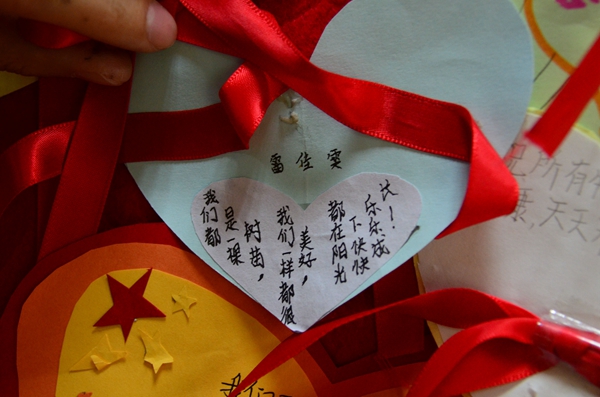 雷佳雯
我们都
是一棵
树苗，
我们一样都很
美好，
都在阳光
下快快
乐乐成
长！
所有
康,天天
我们